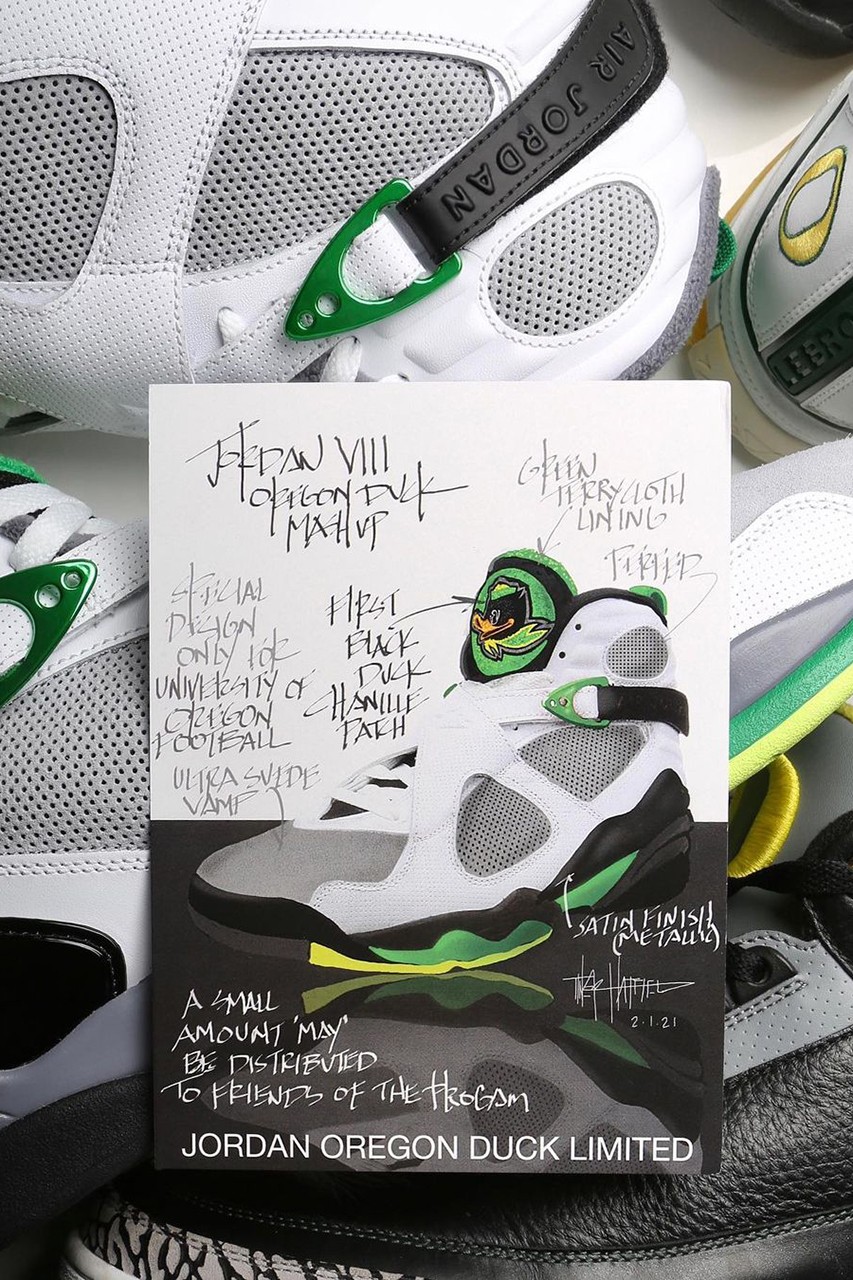 AIR JORDAN
LEBRO
JORDAN VIII
OREGON DUCK
MASHUP
GREEN
TERRYCLOTH
LINING
PERFED
SPECIAL
DESIGN
ONLY FOR
UNIVERSITY OF
OREGON
FOOTBALL
FIRST
BLACK
DUCK
CHANILLE
PATCH
ULTRA SUEDE
VAMP
SATIN FINISH
(METALLIC)
TINKER HATFIELD
2.1.21
A SMALL
AMOUNT "MAY"
BE DISTRIBUTED
TO FRIENDS OF THE PROGAM
JORDAN OREGON DUCK LIMITED